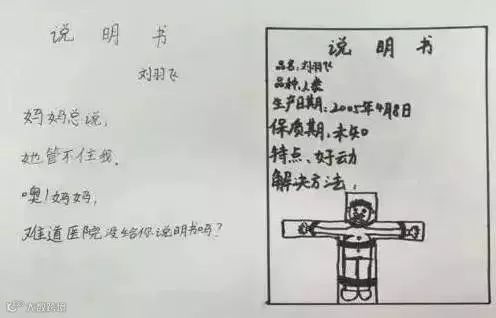 说明书
刘羽飞
妈妈总说,
她管不住我。
噢!妈妈,
难道医院没给你说明书吗?
说明书
品名:刘羽飞
品种:人类
生产日期:2005年4月8日
保质期:未知
特点、好动
解决方法:
大数跨境